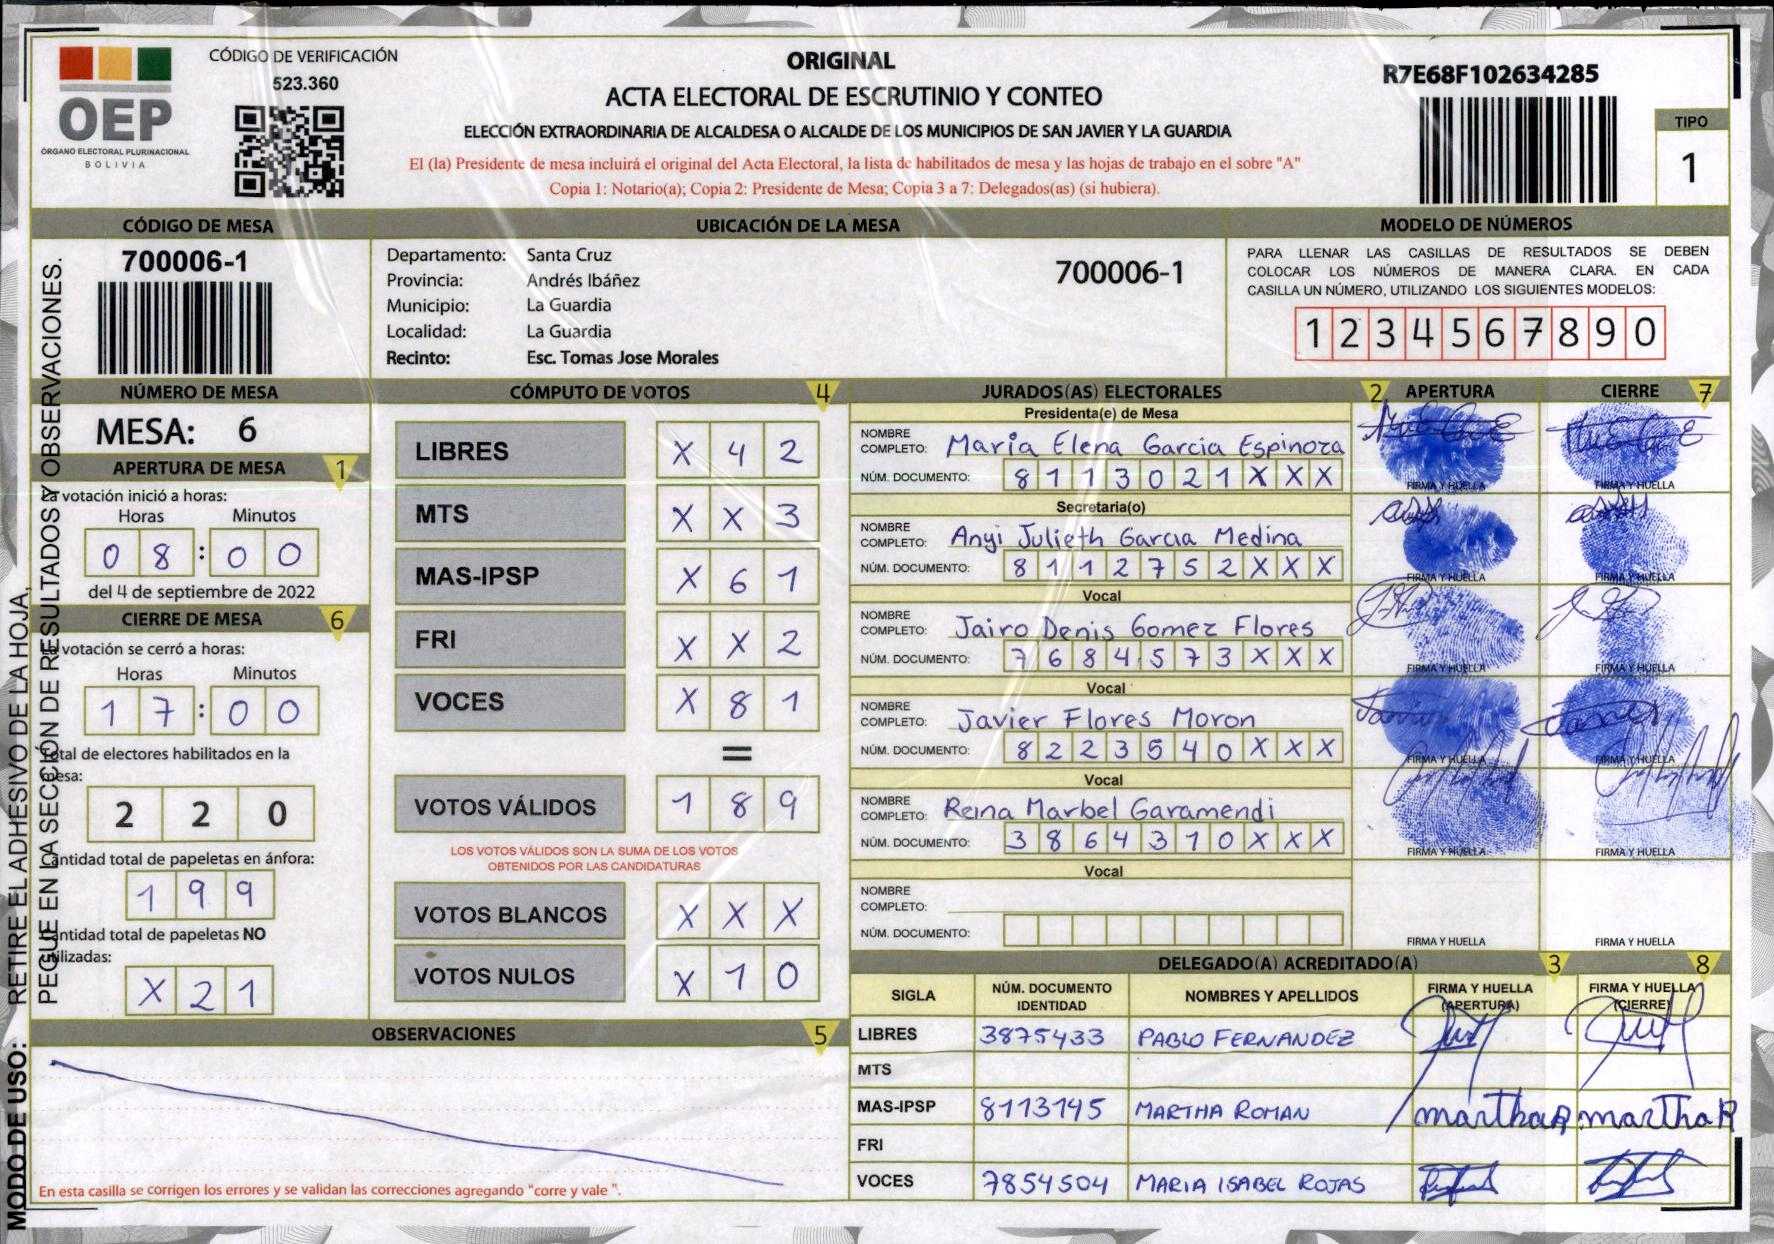 CÓDIGO DE VERIFICACIÓN
523.360
OEP
ÓRGANO ELECTORAL PLURINACIONAL
BOLIVIA
ORIGINAL
ACTA ELECTORAL DE ESCRUTINIO Y CONTEO
ELECCIÓN EXTRAORDINARIA DE ALCALDESA O ALCALDE DE LOS MUNICIPIOS DE SAN JAVIER Y LA GUARDIA
El (la) Presidente de mesa incluirá el original del Acta Electoral, la lista de habilitados de mesa y las hojas de trabajo en el sobre "A"
Copia 1: Notario(a); Copia 2: Presidente de Mesa; Copia 3 a 7: Delegados(as) (si hubiera).
R7E68F102634285
TIPO
1
CÓDIGO DE MESA
700006-1
UBICACIÓN DE LA MESA
Departamento: Santa Cruz
Provincia: Andrés Ibáñez
Municipio: La Guardia
Localidad: La Guardia
Recinto: Esc. Tomas Jose Morales
700006-1
MODELO DE NÚMEROS
PARA LLENAR LAS CASILLAS DE RESULTADOS SE DEBEN
COLOCAR LOS NÚMEROS DE MANERA CLARA. EN CADA
CASILLA UN NÚMERO, UTILIZANDO LOS SIGUIENTES MODELOS:
1 2 3 4 5 6 7 8 9 0
NÚMERO DE MESA
MESA: 6
APERTURA DE MESA 1
La votación inició a horas:
Horas Minutos
0 8 : 0 0
del 4 de septiembre de 2022
CIERRE DE MESA 6
La votación se cerró a horas:
Horas Minutos
1 7 : 0 0
Total de electores habilitados en la
mesa:
2 2 0
Cantidad total de papeletas en ánfora:
1 9 9
Cantidad total de papeletas NO
utilizadas:
X 2 1
CÓMPUTO DE VOTOS 4
LIBRES X 4 2
MTS X X 3
MAS-IPSP X 6 1
FRI X X 2
VOCES X 8 1
=
VOTOS VÁLIDOS 1 8 9
LOS VOTOS VÁLIDOS SON LA SUMA DE LOS VOTOS
OBTENIDOS POR LAS CANDIDATURAS
VOTOS BLANCOS X X X
VOTOS NULOS X 1 0
OBSERVACIONES 5
En esta casilla se corrigen los errores y se validan las correcciones agregando "corre y vale ".
JURADOS(AS) ELECTORALES 2 APERTURA CIERRE 7
Presidenta(e) de Mesa
NOMBRE
COMPLETO: Maria Elena Garcia Espinoza
NÚM. DOCUMENTO: 8 1 1 3 0 2 1 X X X
FIRMA Y HUELLA FIRMA Y HUELLA
Secretaria(o)
NOMBRE
COMPLETO: Anyi Julieth Garcia Medina
NÚM. DOCUMENTO: 8 1 1 2 7 5 2 X X X
FIRMA Y HUELLA FIRMA Y HUELLA
Vocal
NOMBRE
COMPLETO: Jairo Denis Gomez Flores
NÚM. DOCUMENTO: 7 6 8 4 5 7 3 X X X
FIRMA Y HUELLA FIRMA Y HUELLA
Vocal
NOMBRE
COMPLETO: Javier Flores Moron
NÚM. DOCUMENTO: 8 2 2 3 5 4 0 X X X
FIRMA Y HUELLA FIRMA Y HUELLA
Vocal
NOMBRE
COMPLETO: Reina Marbel Garamendi
NÚM. DOCUMENTO: 3 8 6 4 3 1 0 X X X
FIRMA Y HUELLA FIRMA Y HUELLA
Vocal
NOMBRE
COMPLETO:
NÚM. DOCUMENTO:
FIRMA Y HUELLA FIRMA Y HUELLA
DELEGADO(A) ACREDITADO(A) 3 8
SIGLA NÚM. DOCUMENTO IDENTIDAD NOMBRES Y APELLIDOS FIRMA Y HUELLA (APERTURA) FIRMA Y HUELLA (CIERRE)
LIBRES 3875433 PABLO FERNANDEZ
MTS
MAS-IPSP 8113145 MARTHA ROMAN marthaR. marthaR
FRI
VOCES 7854504 MARIA ISABEL ROJAS
MODO DE USO: RETIRE EL ADHESIVO DE LA HOJA,
PEGUE EN LA SECCIÓN DE RESULTADOS Y OBSERVACIONES.